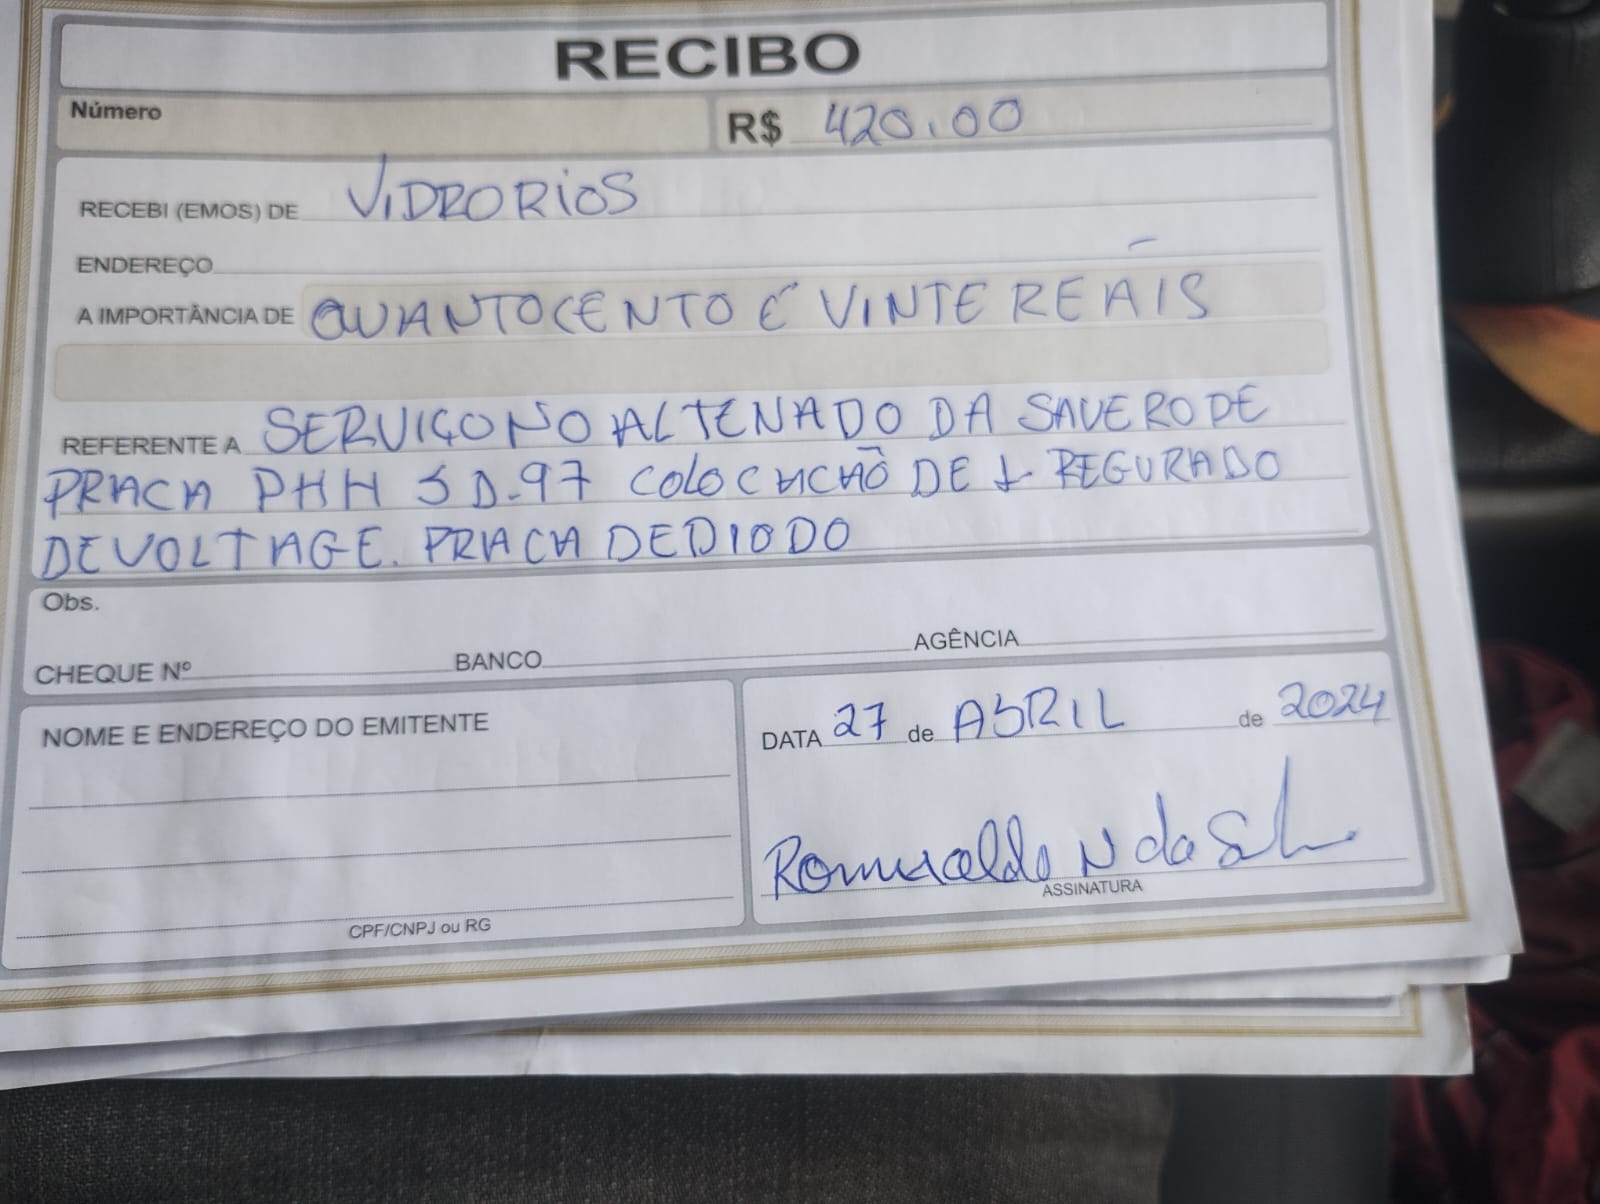 RECIBO
Número
R$ 420,00
RECEBI (EMOS) DE VIDRORIOS
ENDEREÇO
A IMPORTÂNCIA DE QUANTOCENTO E VINTE REAIS
REFERENTE A SERVIÇO NO ALTENADO DA SAVERO DE
PRACA PHH 5D-97 COLOCACHÃO DE 1 REGURADO
DE VOLTAGE. PRACA DE DIODO
Obs.
CHEQUE Nº BANCO AGÊNCIA
NOME E ENDEREÇO DO EMITENTE
DATA 27 de ABRIL de 2024
Romualdo N da
ASSINATURA
CPF/CNPJ ou RG